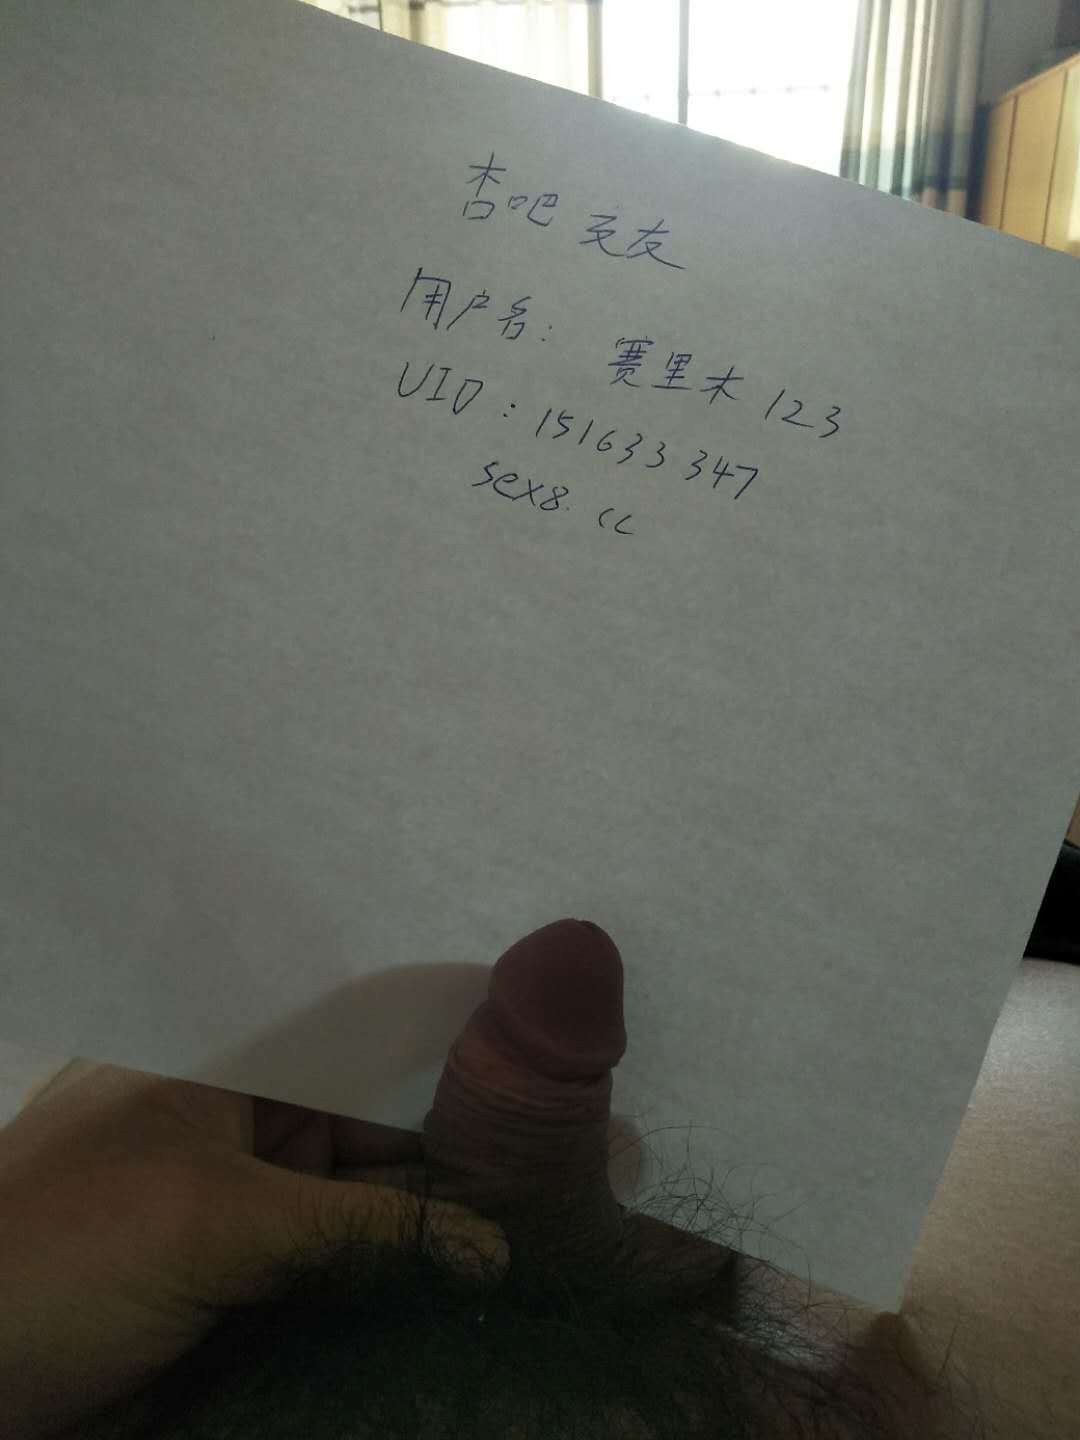 杏吧 交友
用户名: 赛里木 123
UID: 151633347
sex8.cc